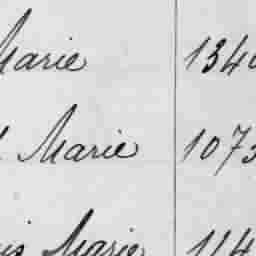 Marie 134
Marie 1073
Marie 114